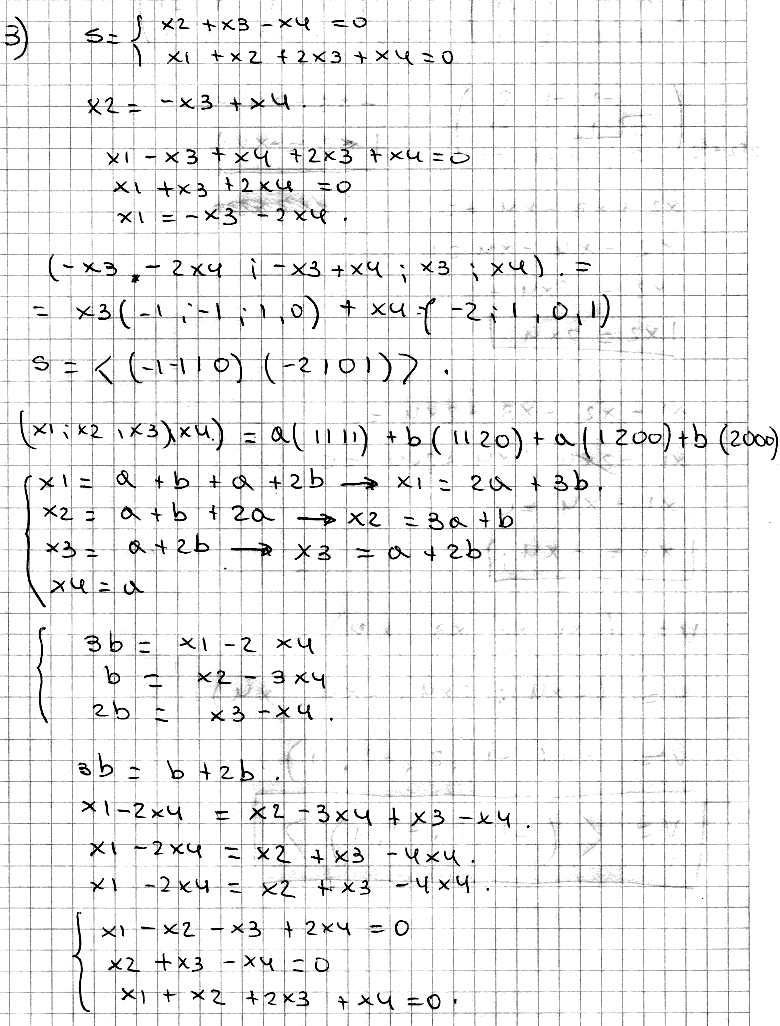 3) S= { x2 + x3 - x4 = 0
x1 + x2 + 2x3 + x4 = 0
x2 = -x3 + x4.
x1 - x3 + x4 + 2x3 + x4 = 0
x1 + x3 + 2x4 = 0
x1 = -x3 - 2x4.
(-x3 - 2x4 ; -x3 + x4 ; x3 ; x4). =
= x3(-1 ; -1 ; 1, 0) + x4·(-2 ; 1, 0, 1)
S = < (-1-110) (-2101) > .
(x1 ; x2 , x3 , x4) = a(1111) + b(1120) + a(1200) + b(2000)
x1 = a + b + a + 2b → x1 = 2a + 3b.
x2 = a + b + 2a → x2 = 3a + b
x3 = a + 2b → x3 = a + 2b
x4 = a
3b = x1 - 2 x4
b = x2 - 3x4
2b = x3 - x4.
3b = b + 2b .
x1 - 2x4 = x2 - 3x4 + x3 - x4.
x1 - 2x4 = x2 + x3 - 4x4.
x1 - 2x4 = x2 + x3 - 4x4.
x1 - x2 - x3 + 2x4 = 0
x2 + x3 - x4 = 0
x1 + x2 + 2x3 + x4 = 0.